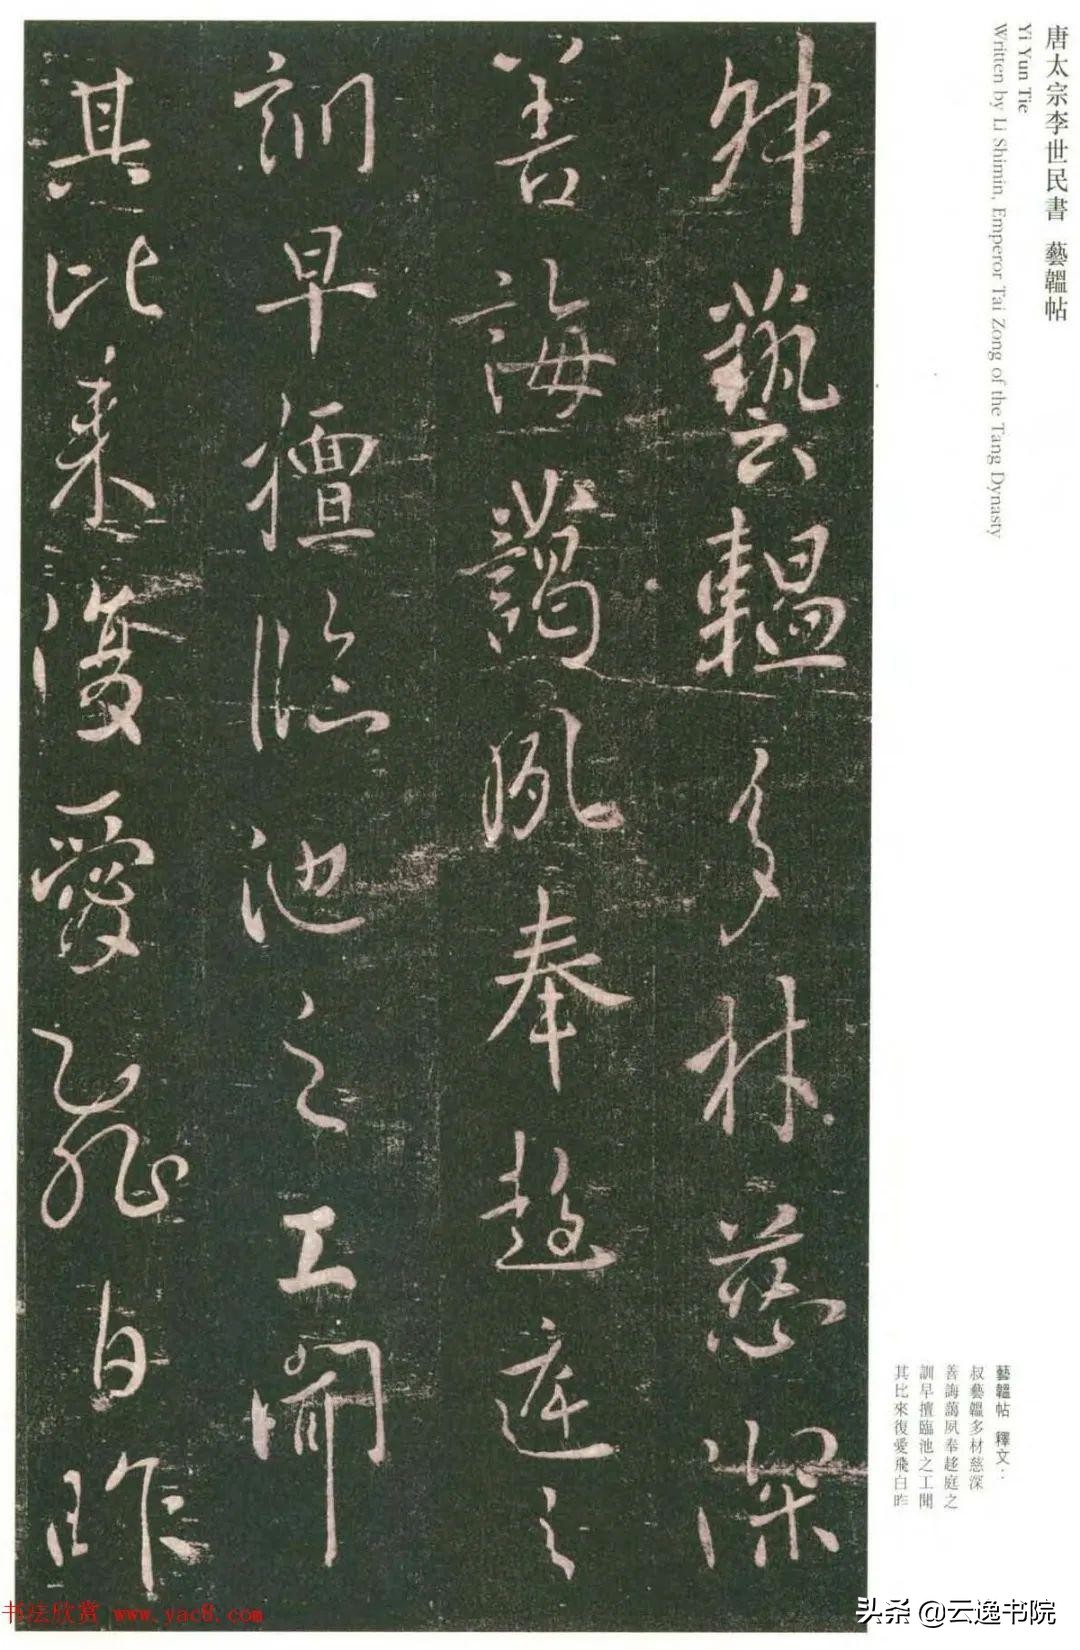 唐太宗李世民書 藝韞帖
Yi Yun Tie
Written by Li Shimin, Emperor Tai Zong of the Tang Dynasty
叔藝韞多材慈深
善誨藹夙奉趍庭之
訓早擅臨池之工聞
其比来復愛飛白昨
藝韞帖 釋文：
叔藝韞多材慈深
善誨藹夙奉趍庭之
訓早擅臨池之工聞
其比來復愛飛白昨
书法欣赏 www.yac8.com
头条 @云逸书院